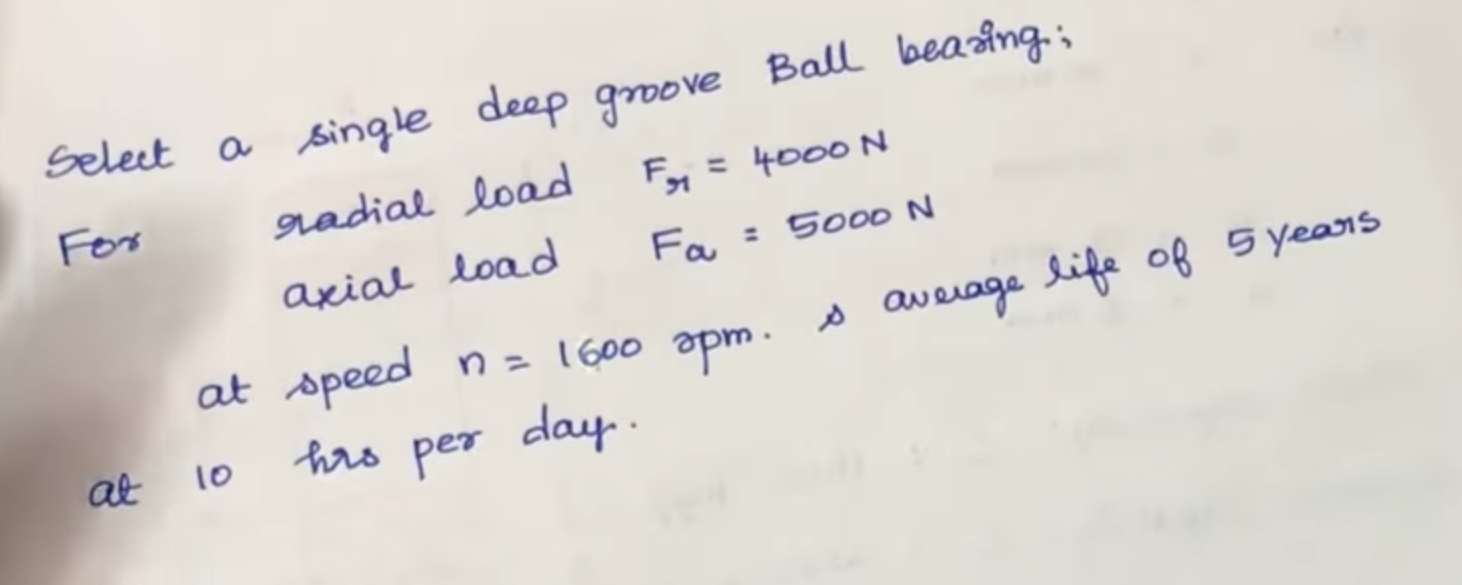 Select a single deep groove Ball bearing;
For radial load Fr = 4000 N
axial load Fa = 5000 N
at speed n = 1600 rpm. s average life of 5 years
at 10 hrs per day.